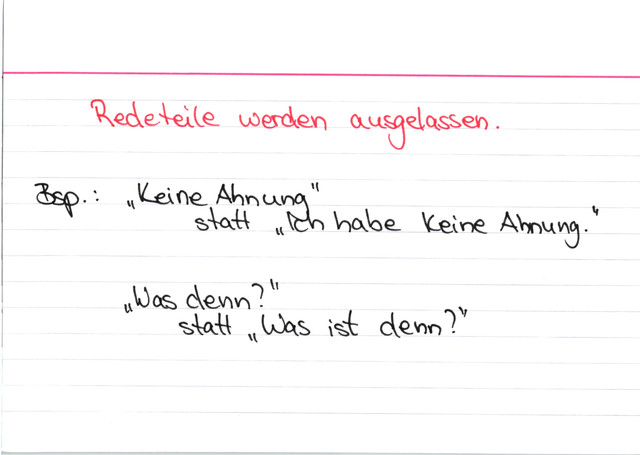 Redeteile werden ausgelassen.
Bsp.: „Keine Ahnung"
statt „Ich habe keine Ahnung."
„Was denn?"
statt „Was ist denn?"